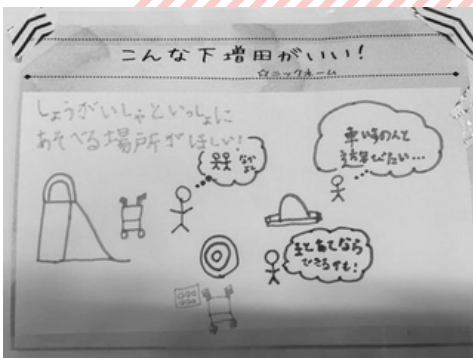 こんな下増田がいい!
☆ニックネーム
しょうがいしゃといっしょに
あそべる場所がほしい!
なか
よし
車いすの人と
遊びたい…
まとあてなら
できるかも!